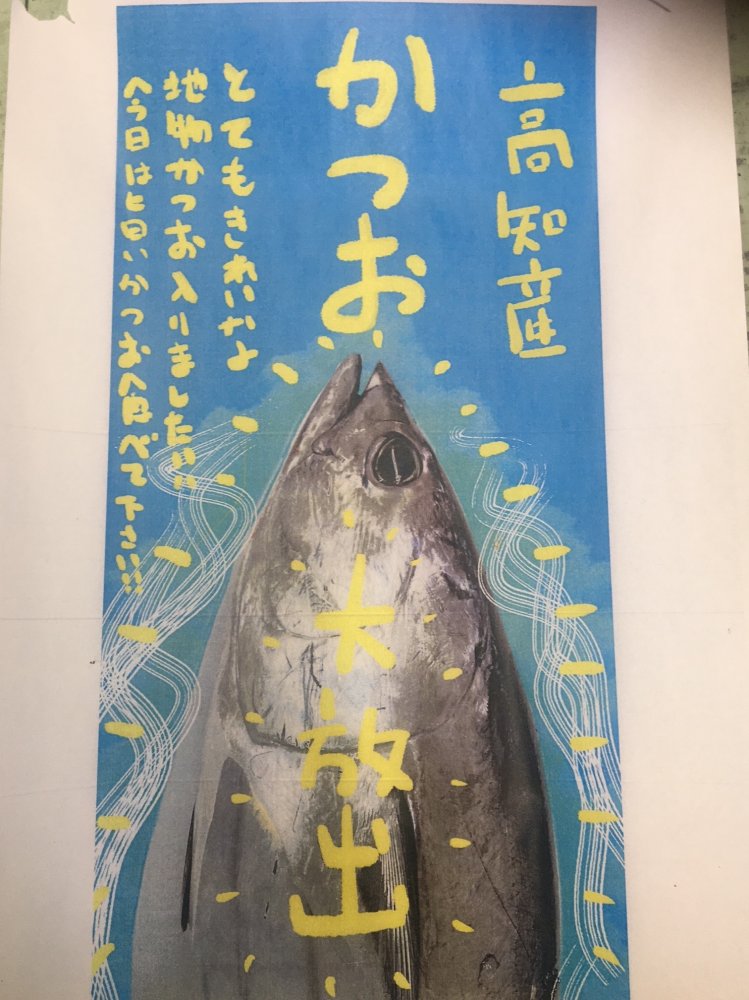 高知産
かつお
とてもきれいなよ
地物かつお入りました!!
今日は旨いかつお食べて下さい!!
大放出